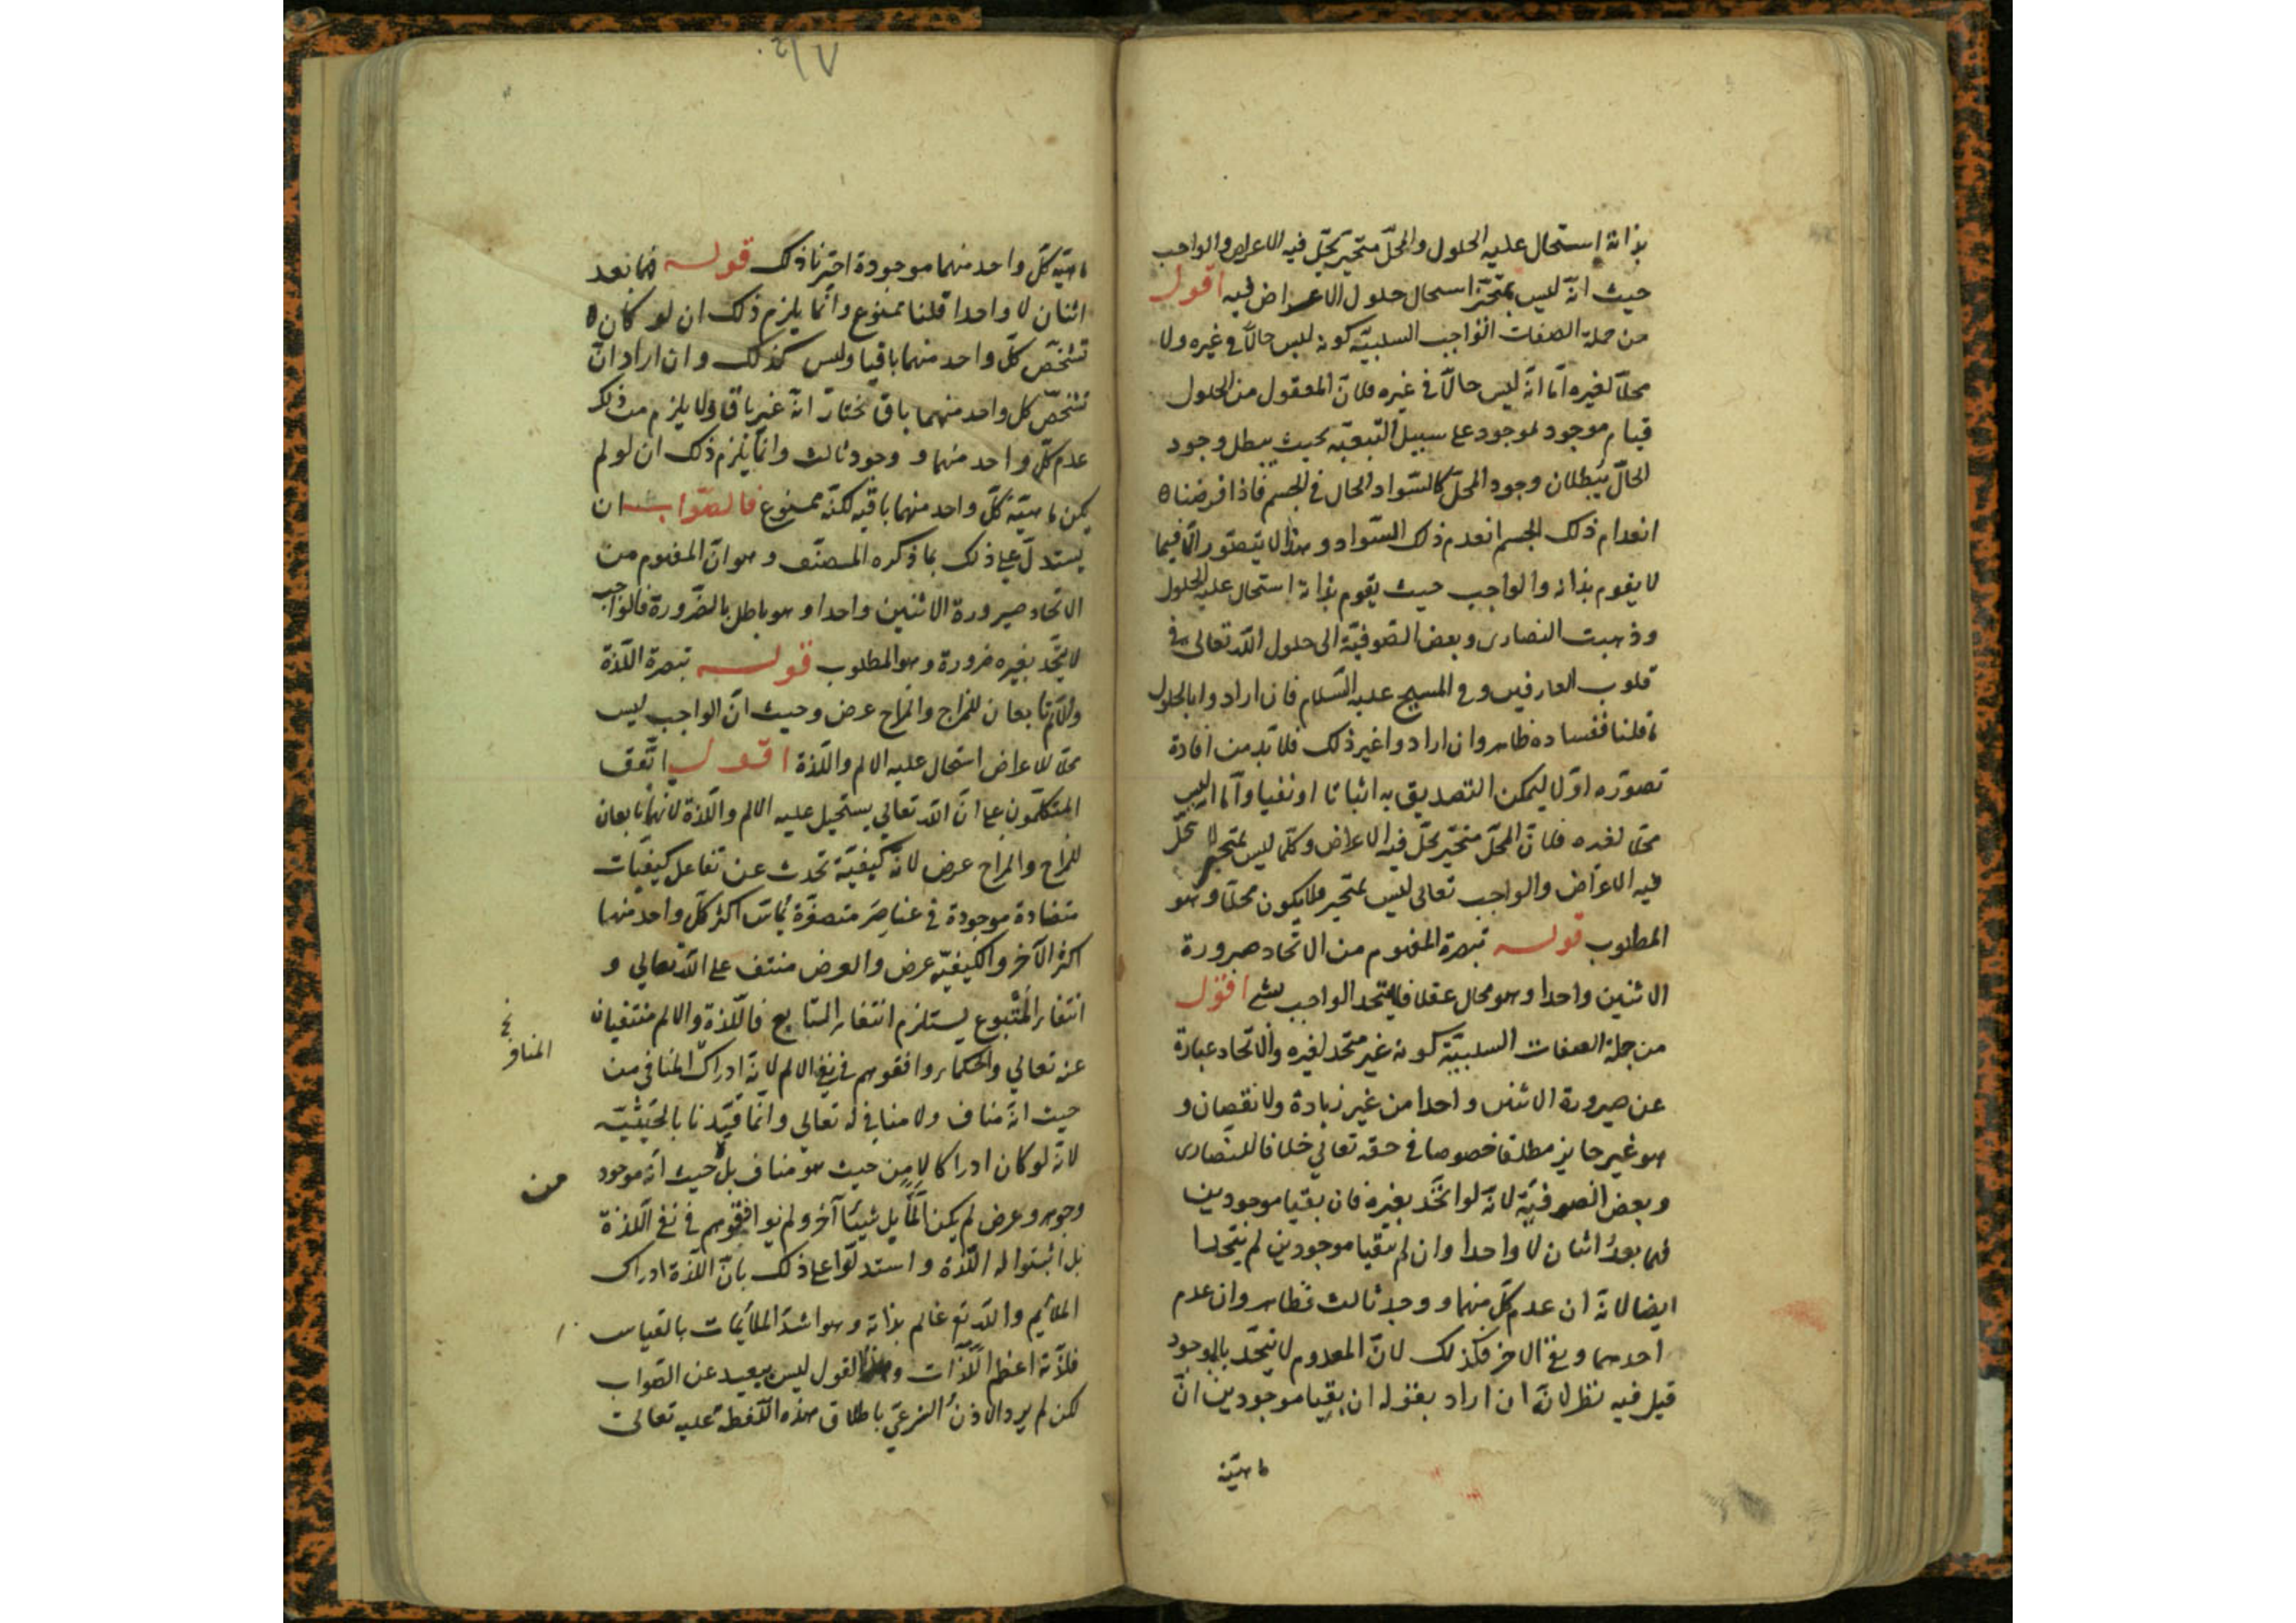 بذاته استحال عليه الحلول والمحلّ متحيّز يحلّ فيه الاعراض والواجب
حيث انّه ليس بمتحيّز استحال حلول الاعراض فيه اقول
من جملة الصفات الواجب السلبيّة كونه ليس حالّا في غيره ولا
محلّا لغيره امّا انّه ليس حالّا في غيره فلانّ المعقول من الحلول
قيام موجود لموجود على سبيل التّبعيّة بحيث يبطل وجود
الحالّ ببطلان وجود المحلّ كالسّواد الحال في الجسم فاذا فرضنا
انعدام ذلك الجسم انعدم ذلك السّواد وهذا لا يتصوّر الّا فيما
لا يقوم بذاته والواجب حيث يقوم بذاته استحال عليه الحلول
وذهبت النصارى وبعض الصّوفيّة الى حلول الله تعالى في
قلوب العارفين وفي المسيح عليه السّلام فان ارادوا بالحلول
ما قلنا ففساده ظاهر وان ارادوا غير ذلك فلا بدّ من افادة
تصوّره اوّلا ليمكن التصديق به اثباتا او نفيا وامّا انّه ليس
محلّا لغيره فلانّ المحلّ متحيّز يحلّ فيه الاعراض وكلّما ليس بمتحيّز لا تحلّ
فيه الاعراض والواجب تعالى ليس بمتحيّز فلا يكون محلّا وهو
المطلوب قوله تبصرة المفهوم من الاتحاد صيرورة
الاثنين واحدا وهو محال عقلا فلا يتحد الواجب بشيء اقول
من جملة الصفات السلبيّة كونه غير متّحد لغيره والاتحاد عبارة
عن صيرورة الاثنين واحدا من غير زيادة ولا نقصان و
هو غير جايز مطلقا خصوصا في حقه تعالى خلافا للنّصارى
وبعض الصوفيّة لانّه لو اتّحد بغيره فان بقيا موجودين
فهما بعدُ اثنان لا واحدا وان لم يبقيا موجودين لم يتّحدا
ايضا لانّه ان عدم كلّ منهما ووجد ثالث فظاهر وان عدم
احدهما وبقي الاخر فكذلك لانّ المعدوم لا يتّحد بالموجود
قيل فيه نظر لانّه ان اراد بقوله ان بقيا موجودين انّ
ماهيّة
ماهيّة كلّ واحد منهما موجودة اخترنا ذلك قوله فهما بعد
اثنان لا واحدا قلنا ممنوع وانّما يلزم ذلك ان لو كان
تشخّص كلّ واحد منهما باقيا وليس كذلك وان اراد انّ
تشخّص كل واحد منهما باق نختار انّه غير باق ولا يلزم من ذلك
عدم كلّ واحد منهما و وجود ثالث وانّما يلزم ذلك ان لو لم
يكن ماهيّة كلّ واحد منهما باقية لكنّه ممنوع فالصّواب ان
يستدلّ على ذلك بما ذكره المصنّف وهو انّ المفهوم من
الاتحاد صيرورة الاثنين واحدا وهو باطل بالضّرورة فالواجب
لا يتّحد بغيره ضرورة وهو المطلوب قوله تبصرة اللّذة
والالم تابعان للمزاج والمزاج عرض وحيث انّ الواجب ليس
محلّا للاعراض استحال عليه الالم واللّذة اقول اتّفق
المتكلّمون على انّ الله تعالى يستحيل عليه الالم واللّذة لانّهما تابعان
للمزاج والمزاج عرض لانّه كيفيّة تحدث عن تفاعل كيفيّات
متضادة موجودة في عناصر متصغّرة تماسّ اكثر كلّ واحد منها
اكثر الآخر والكيفيّة عرض والعرض منتف على الله تعالى و
انتفاء المتبوع يستلزم انتفاء التابع فاللّذة والالم منتفيان
عنه تعالى والحكماء وافقوهم في نفي الالم لانّه ادراك المنافي من
المنافي
حيث انّه مناف ولا منافي له تعالى وانّما قيّدنا بالحيثيّة
لانّه لو كان ادراكا لا من حيث هو مناف بل حيث انّه موجود
من
وجوهر وعرض لم يكن المًا بل شيئًا آخر ولم يوافقوهم في نفي اللّذة
بل اثبتوا له اللّذة واستدلّوا على ذلك بانّ اللّذة ادراك
الملائم والله تع عالم بذاته وهو اشدّ الملائمات بالقياس
فلذّته اعظم اللّذّات وهذا القول ليس ببعيد عن الصّواب
لكن لم يرد الاذن الشرعيّ باطلاق هذه اللّفظة عليه تعالى